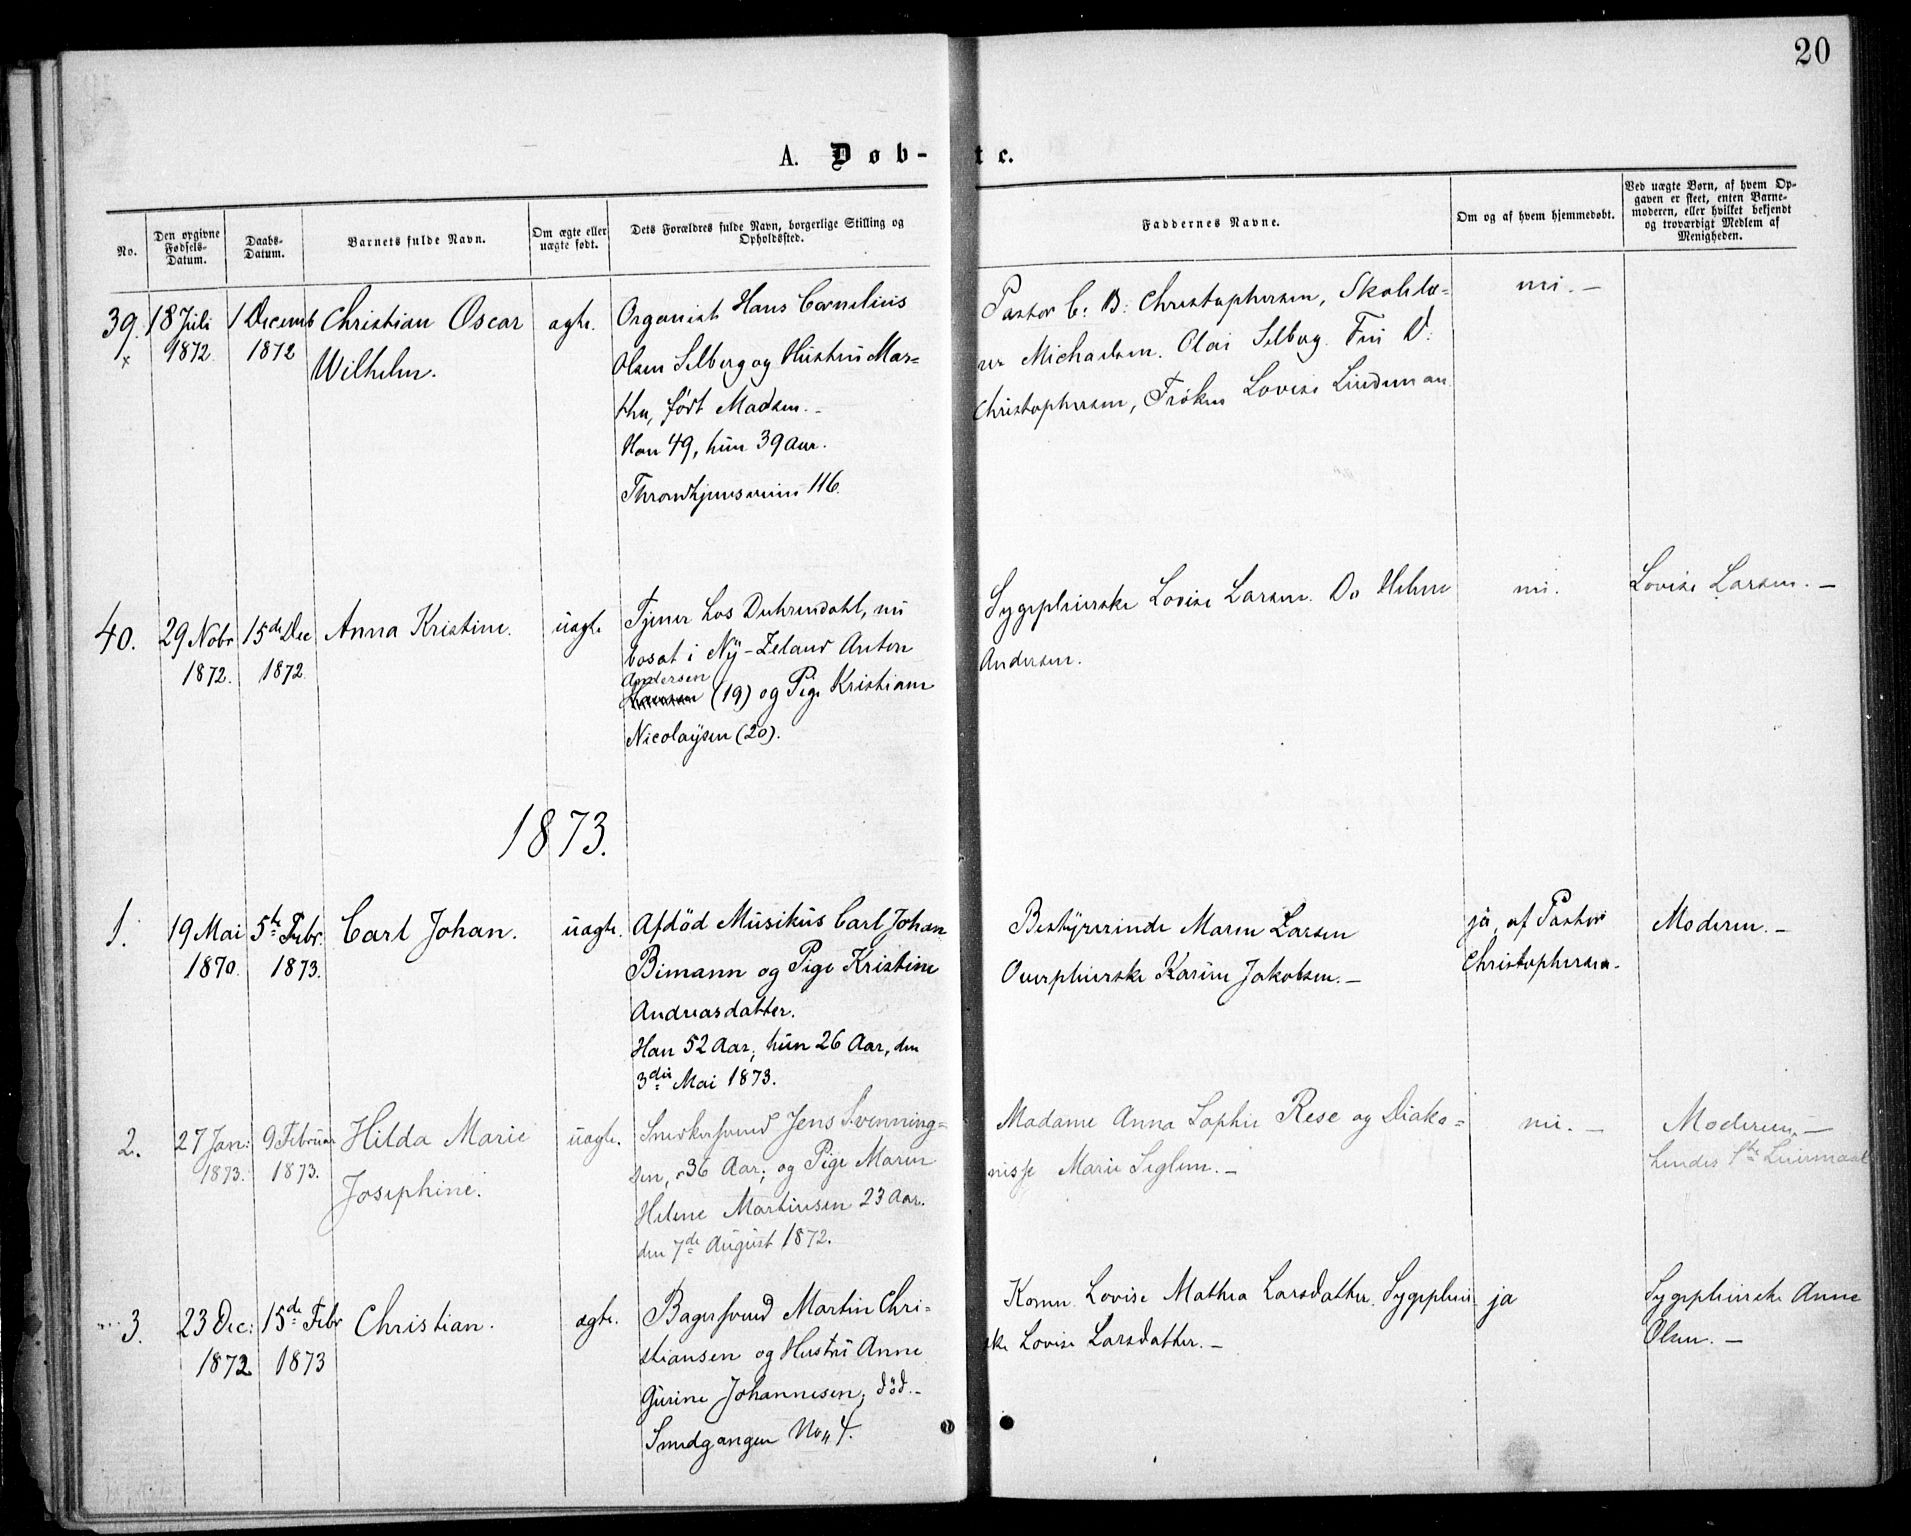 20
A. Døb-te.
No.
Den opgivne Fødsels-Datum.
Daabs-Datum.
Barnets fulde Navn.
Om ægte eller uægte født.
Dets Forældres fulde Navn, borgerlige Stilling og Opholdssted.
Faddernes Navne.
Om og af hvem hjemmedøbt.
Ved uægte Børn, af hvem Opgaven er skeet, enten Barnemoderen, eller hvilket bekjendt og troværdigt Medlem af Menigheden.
39.
x
18 Juli
1872.
1 Decemb
1872
Christian Oscar
Wilhelm.
ægte.
Organist Hans Cornelius
Olsen Selberg og Hustru Mar-
tha, født Madsen.-
Han 49, hun 39 Aar.
Throndhjemsveien 116.
Pastor C. B. Christophersen, Skolelæ-
rer Michaelsen. Olai Selberg. Fru D.
Christophersen, Frøken Lovise Lindeman
nei.-
40.
29 Nobr
1872.
15de Dec
1872.
Anna Kristine.
uægte
Tjener hos Duhrendahl, nu
bosat i Ny-Zeland Anton
Andersen
(19) og Pige Kristiane
Nicolaysen (20).
Sygepleierske Lovise Larsen. Do Helene
Andersen.
nei.
Lovise Larsen.-
1873.
1.
19 Mai
1870.
5te Febr.
1873.
Carl Johan.
uægte.
Afdød Musikus Carl Johan
Bimann og Pige Kristine
Andreasdatter.
Han 52 Aar; hun 26 Aar, den
3die Mai 1873.
Bestyrerinde Maren Larsen
Overpleierske Karine Jakobsen.-
ja, af Pastor
Christophersen.
Moderen.-
2.
27 Jan:
1873.
9 Februar
1873.
Hilda Marie
Josephine.
uægte.
Snedkersvend Jens Svenning-
sen, 36 Aar; og Pige Maren
Helene Martinsen 23 Aar.
den 7de August 1872.
Madame Anna Sophie Rese og Diako-
nisse Marie Seglem.-
nei.-
Moderen,-
hendes 1ste Leiermaal
3.
23 Dec:
1872
15de Febr
1873
Christian.
ægte.
Bagersvend Martin Chri-
stiansen og Hustru Anne
Gurine Johannesen, død.-
Smedgangen No 4.
Komn Lovise Mathea Larsdatter. Sygepleier-
ske Lovise Larsdatter.-
ja
Sygepleierske Anne
Olsen.-